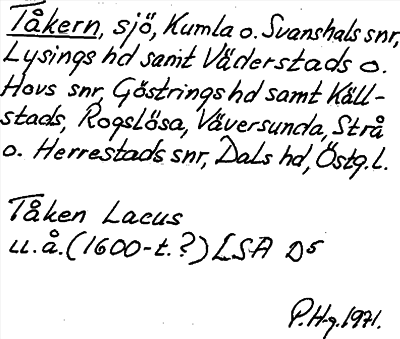 Tåkern, sjö, Kumla o. Svanshals snr,
Lysings hd samt Väderstads o.
Hovs snr, Göstrings hd samt Käll-
stads, Rogslösa, Väversunda, Strå
o. Herrestads snr, Dals hd, Östg.l.
Tåken Lacus
u.å. (1600-t.?) LSA D5
P.H-g. 1971.